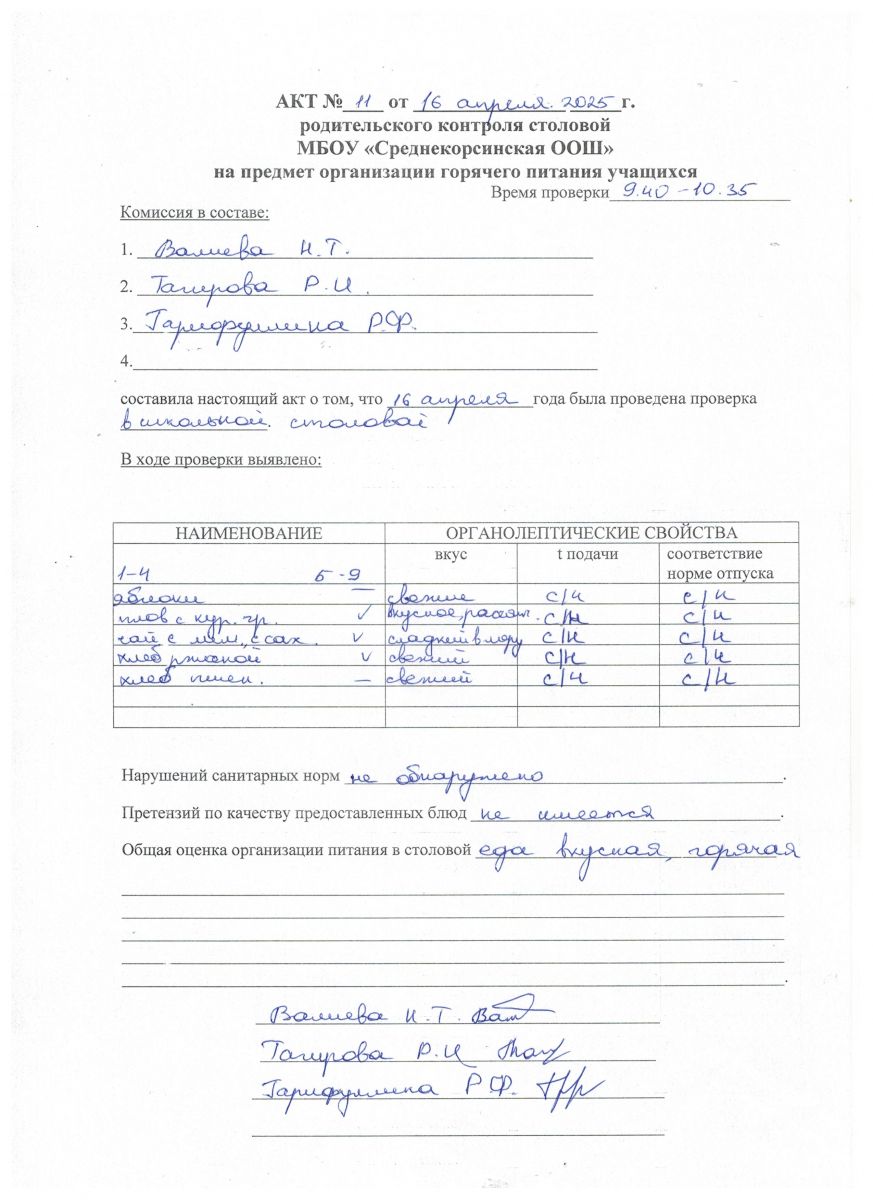 АКТ № 11 от 16 апреля 2025 г.
родительского контроля столовой
МБОУ «Среднекорсинская ООШ»
на предмет организации горячего питания учащихся
Время проверки 9.40 - 10.35
Комиссия в составе:
1. Валиева Н.Т.
2. Тагирова Р.И.
3. Гарифуллина Р.Ф.
4.
составила настоящий акт о том, что 16 апреля года была проведена проверка
в школьной. столовой
В ходе проверки выявлено:
НАИМЕНОВАНИЕ ОРГАНОЛЕПТИЧЕСКИЕ СВОЙСТВА
вкус t подачи соответствие
1-4 5-9 норме отпуска
яблоки — свежие с/н с/н
плов с кур. гр. ✓ вкусное, рассып. с/н с/н
чай с мол., с сах. ✓ сладкий в меру с/н с/н
хлеб ржаной ✓ свежий с/н с/н
хлеб пшен. — свежий с/н с/н
Нарушений санитарных норм не обнаружено.
Претензий по качеству предоставленных блюд не имеется.
Общая оценка организации питания в столовой еда вкусная, горячая
Валиева Н.Т.
Тагирова Р.И.
Гарифуллина Р.Ф.